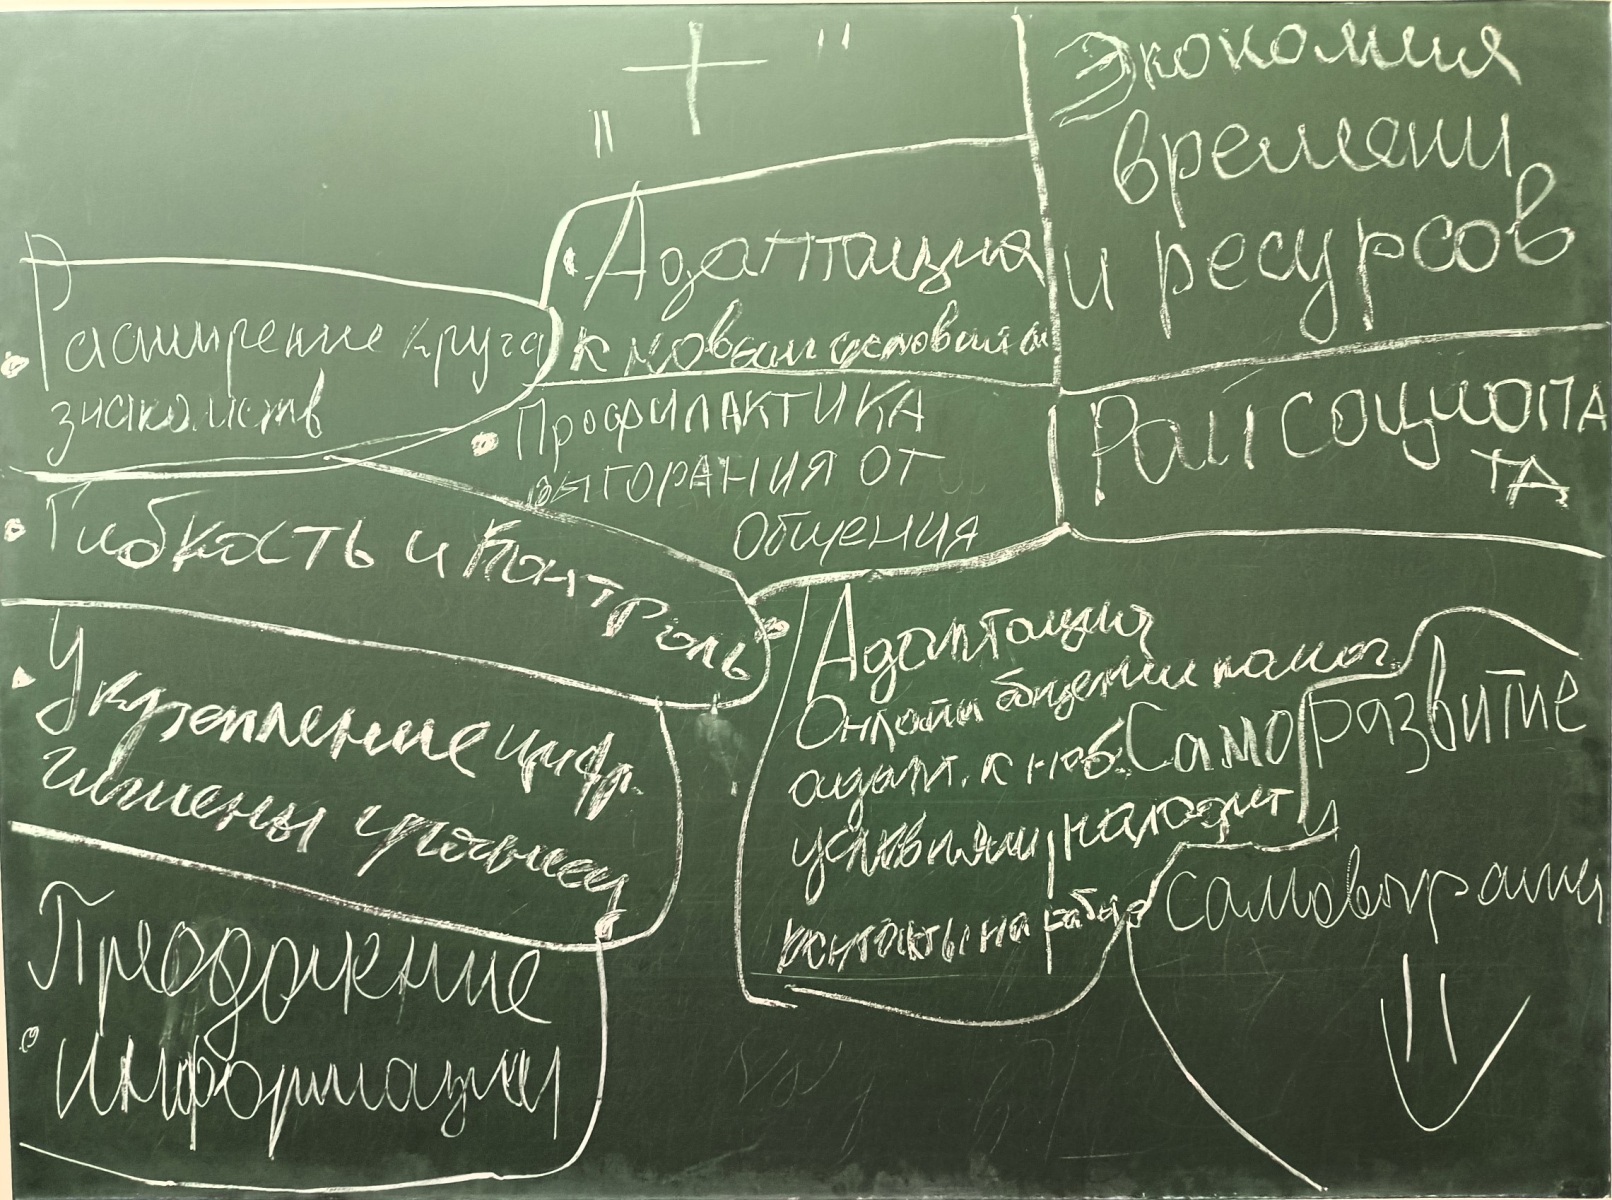 " + "
Экономия
времени
и ресурсов
• Адаптация
к новым условиям
• Расширение круга
знакомств
• ПРОФИЛАКТИКА
ВЫГОРАНИЯ ОТ
ОБЩЕНИЯ
Рай социопа
та
• Гибкость и контроль
• Адаптация
Онлайн общении помог
адапт. к нов.
условиям, находит
контакты на рабо
Саморазвитие
и
самовозращ
• Укрепление цифр.
гигиены
Преодожение
• информации